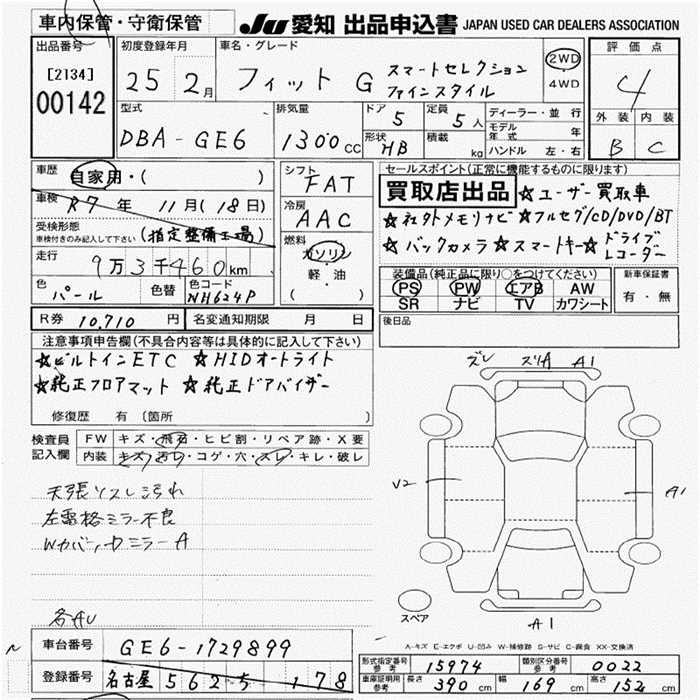 車内保管・守衛保管 JU 愛知 出品申込書 JAPAN USED CAR DEALERS ASSOCIATION
出品番号 初度登録年月 車名・グレード 評価点
[2134] 25 2月 フィット G スマートセレクション 2WD・ 4
00142 ファインスタイル 4WD
型式 排気量 ドア 定員 ディーラー・並行 外装 内装
DBA-GE6 1300cc 5 5人 モデル年式 年 B C
形状 HB 積載 kg ハンドル 左・右
車歴 自家用・( ) シフト FAT セールスポイント(正常に機能するものに限ります)
車検 R7年 11月(18日) 冷房 AAC 買取店出品 ☆ユーザー買取車
受検形態 ☆社外メモリナビ☆フルセグ/CD/DVD/BT
車検付きのみ記入して下さい (指定整備工場) 燃料 ☆バックカメラ☆スマートキー☆ドライブレコーダー
走行 9万3千460km ガソリン 装備品(純正品に限り○をつけてください) 新車保証書
軽・油 PS PW エアB AW 有・無
色 パール 色替 色コード NH624P ( ) SR ナビ TV カワシート
R券 10,710円 名変通知期限 月 日 後日品
注意事項申告欄(不具合内容等は具体的に記入して下さい)
☆ビルトインETC ☆HIDオートライト
☆純正フロアマット ☆純正ドアバイザー
修復歴 有 〔箇所 〕
検査員 FW キズ・飛石・ヒビ割・リペア跡・X要
記入欄 内装 キズ・汚レ・コゲ・穴・スレ・キレ・破レ
ズレ スリA A1
天張リスレ汚れ
V2 A1
左電格ミラー不良
WカバーDミラーA
スペア
A1
各AU
A-キズ E-エクボ U-凹み W-補修跡 S-サビ C-腐食 XX-交換済
車台番号 GE6-1729899 型式指定番号 参考 15974 類別区分番号 参考 0022
登録番号 名古屋 562 5 178 車庫証明用 参考 長さ 390cm 幅 169cm 高さ 152cm